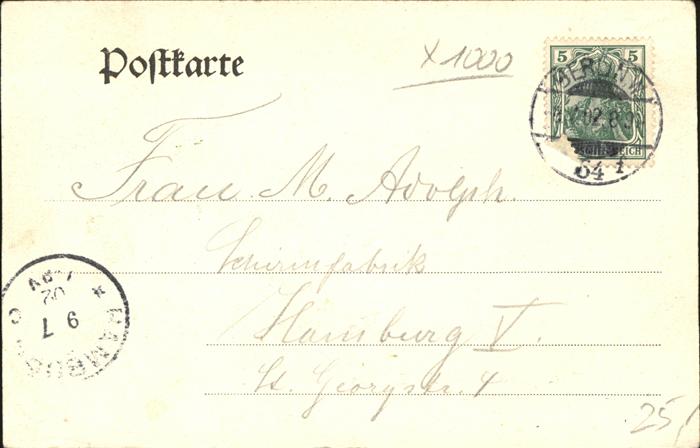 Postkarte
x 1000
5 5
BERLIN N.W.
02.8
64 1
Frau M. Adolph.
Schirmfabrik
Hamburg V.
St. Georgstr. 4
HAMBURG
9 7
02
25